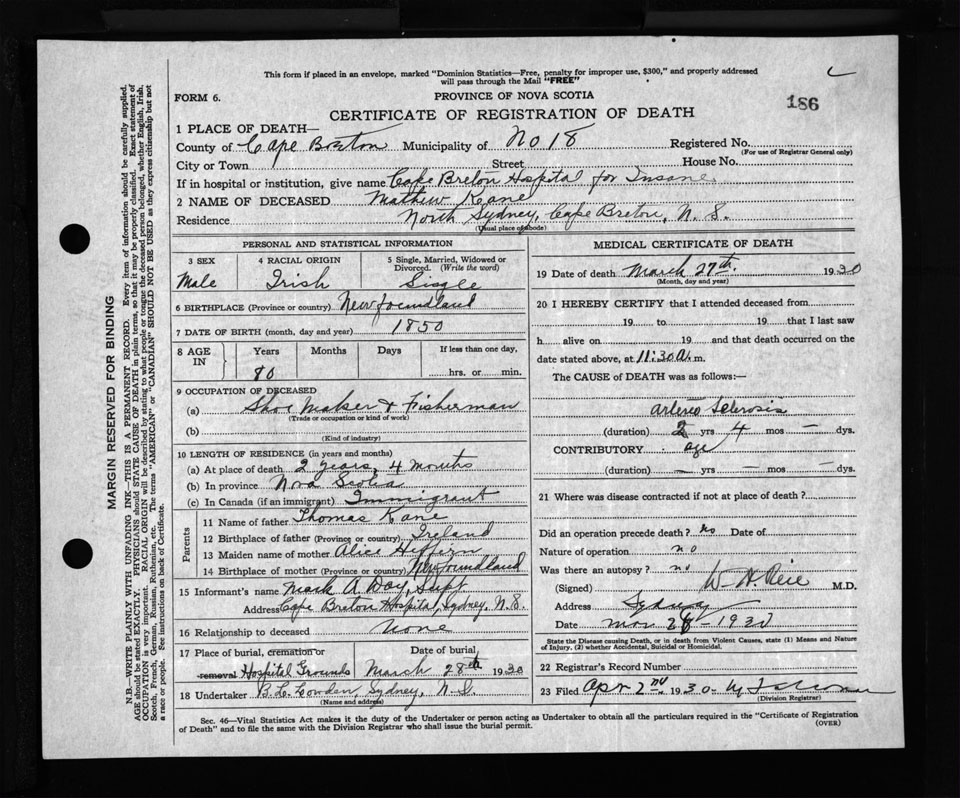 This form if placed in an envelope, marked "Dominion Statistics—Free, penalty for improper use, $300," and properly addressed
will pass through the Mail "FREE"
186
FORM 6.
PROVINCE OF NOVA SCOTIA
CERTIFICATE OF REGISTRATION OF DEATH
1 PLACE OF DEATH—
County of Cape Breton Municipality of No 18 Registered No.
(For use of Registrar General only)
City or Town Street House No.
If in hospital or institution, give name Cape Breton Hospital for Insane
2 NAME OF DECEASED Mathew Kane
Residence North Sydney, Cape Breton, N. S.
(Usual place of abode)
PERSONAL AND STATISTICAL INFORMATION
3 SEX
Male
4 RACIAL ORIGIN
Irish
5 Single, Married, Widowed or
Divorced. (Write the word)
Single
6 BIRTHPLACE (Province or country) Newfoundland
7 DATE OF BIRTH (month, day and year) 1850
8 AGE IN
Years Months Days If less than one day,
80 hrs. or min.
9 OCCUPATION OF DECEASED
(a) Shoe Maker & Fisherman
(Trade or occupation or kind of work)
(b)
(Kind of industry)
10 LENGTH OF RESIDENCE (in years and months)
(a) At place of death 2 years, 4 months
(b) In province Nova Scotia
(c) In Canada (if an immigrant) Immigrant
Parents
11 Name of father Thomas Kane
12 Birthplace of father (Province or country) Ireland
13 Maiden name of mother Alice Heffern
14 Birthplace of mother (Province or country) Newfoundland
15 Informant's name Mark A Day, Supt
Address Cape Breton Hospital, Sydney, N. S.
16 Relationship to deceased None
17 Place of burial, cremation or
removal Hospital Grounds
Date of burial
March 28th 1930
18 Undertaker Sydney, N. S.
(Name and address)
MEDICAL CERTIFICATE OF DEATH
19 Date of death March 27th. 1930
(Month, day and year)
20 I HEREBY CERTIFY that I attended deceased from
19 to 19 that I last saw
h alive on 19 and that death occurred on the
date stated above, at 11:30 A. m.
The CAUSE of DEATH was as follows:—
arterio Sclerosis
(duration) 2 yrs 4 mos — dys.
CONTRIBUTORY age
(duration) — yrs — mos — dys.
21 Where was disease contracted if not at place of death?
Did an operation precede death? No Date of
Nature of operation no
Was there an autopsy? no
(Signed) M.D.
Address Sydney
Date 1930
State the Disease causing Death, or in death from Violent Causes, state (1) Means and Nature
of Injury. (2) whether Accidental, Suicidal or Homicidal.
22 Registrar's Record Number
23 Filed Apr 2nd 1930
(Division Registrar)
Sec. 46—Vital Statistics Act makes it the duty of the Undertaker or person acting as Undertaker to obtain all the particulars required in the "Certificate of Registration
of Death" and to file the same with the Division Registrar who shall issue the burial permit.
(OVER)
MARGIN RESERVED FOR BINDING
N.B.—WRITE PLAINLY WITH UNFADING INK—THIS IS A PERMANENT RECORD. Every item of information should be carefully supplied.
AGE should be stated EXACTLY. PHYSICIANS should STATE CAUSE OF DEATH in plain terms, so that it may be properly classified. Exact statement of
OCCUPATION is very important. RACIAL ORIGIN will be described by stating to what people or tongue the deceased person belonged, whether English, Irish,
Scotch, French, German, Russian, Ruthenian, etc. The terms "AMERICAN" or "CANADIAN" SHOULD NOT BE USED as they express citizenship but not
a race or people. See instructions on back of Certificate.